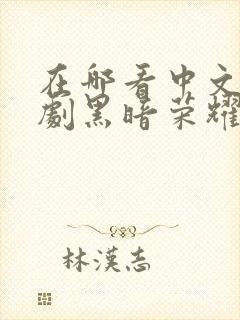 在哪看中文
劇黑暗荣耀
林漢志